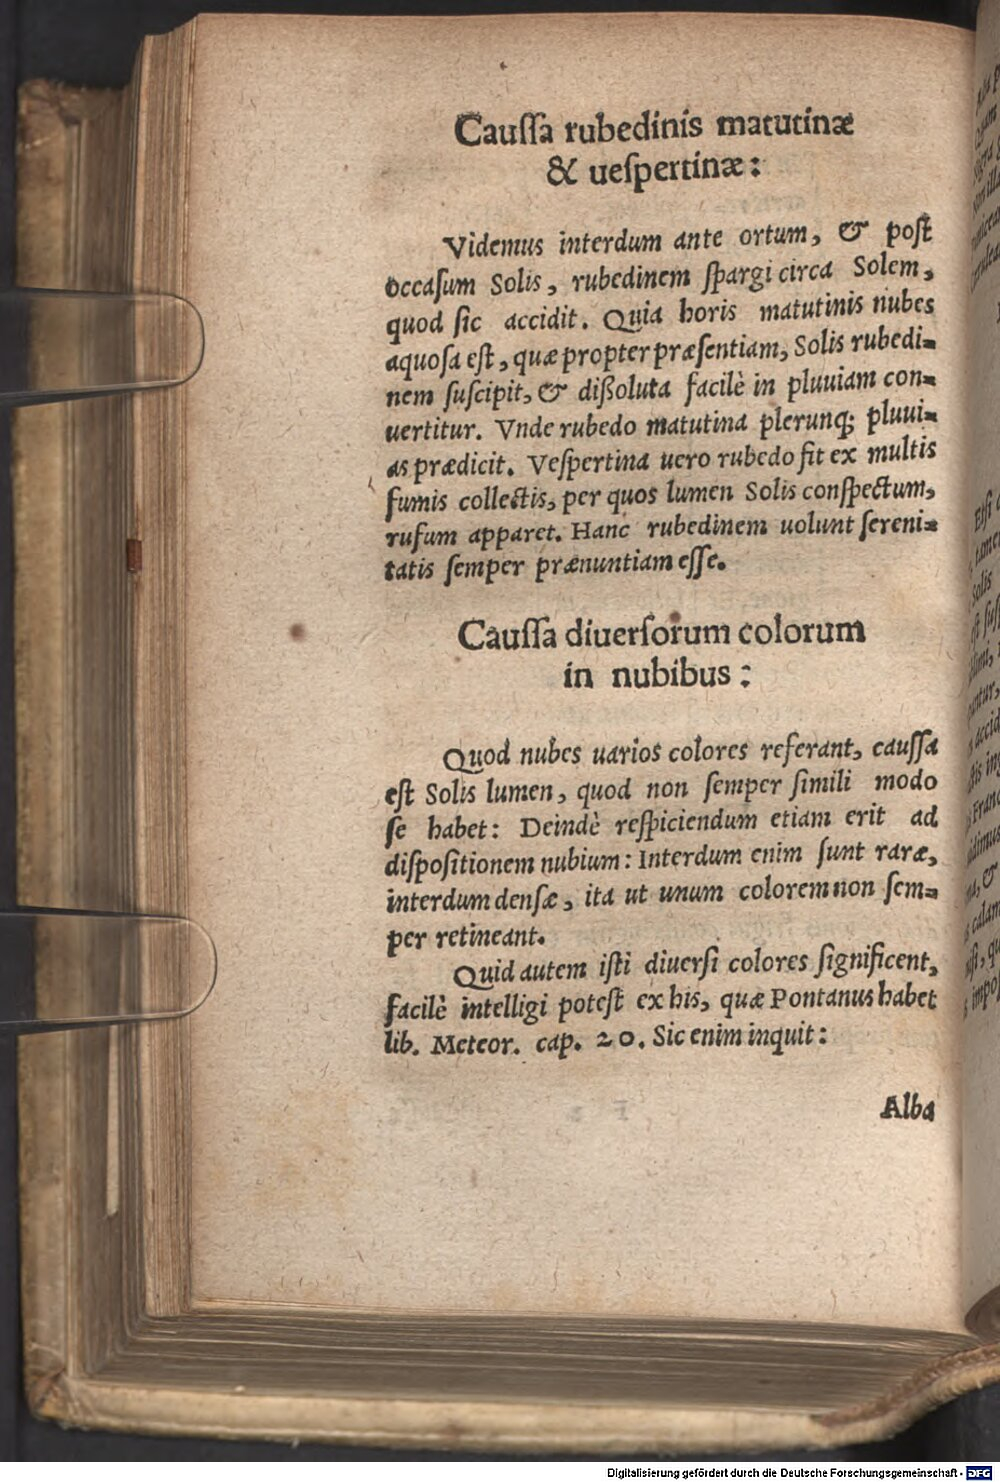 Cauſſa rubedinis matutinæ
& ueſpertinæ:
Videmus interdum ante ortum, & poſt
occaſum Solis, rubedinem ſpargi circa Solem,
quod ſic accidit. Quia horis matutinis nubes
aquoſa eſt, quæ propter præſentiam, Solis rubedi=
nem ſuſcipit, & dißoluta facilè in pluuiam con=
uertitur. Vnde rubedo matutina plerunq; pluui=
as prædicit. Veſpertina uero rubedo fit ex multis
fumis collectis, per quos lumen Solis conſpectum,
rufum apparet. Hanc rubedinem uolunt ſereni=
tatis ſemper prænuntiam eſſe.
Cauſſa diuerſorum colorum
in nubibus:
Quod nubes uarios colores referant, cauſſa
eſt Solis lumen, quod non ſemper ſimili modo
ſe habet: Deindè reſpiciendum etiam erit ad
diſpoſitionem nubium: Interdum enim ſunt raræ,
interdum denſæ, ita ut unum colorem non ſem=
per retineant.
Quid autem iſti diuerſi colores ſignificent,
facilè intelligi poteſt ex his, quæ Pontanus habet
lib. Meteor. cap. 20. Sic enim inquit:
Alba
Digitalisierung gefördert durch die Deutsche Forschungsgemeinschaft - DFG